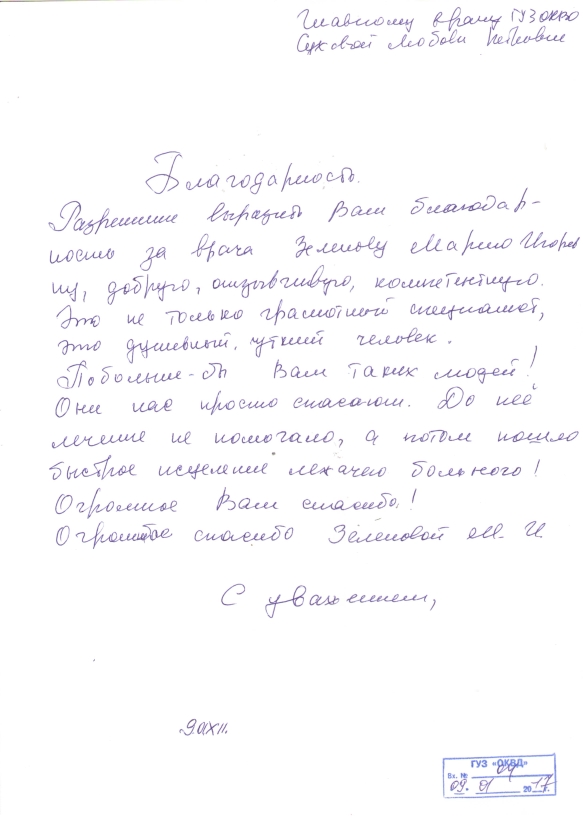 Главному врачу ГУЗ ОКВД
Суховой Любови Петровне
Благодарность.
Разрешите выразить Вам благодар-
ность за врача Зеленову Марию Игорев
ну, добрую, отзывчивую, компетентную.
Это не только грамотный специалист,
это душевный, чуткий человек.
Побольше-бы Вам таких людей!
Они нас просто спасают. До неё
лечение не помогало, а потом пошло
быстрое исцеление лежачего больного!
Огромное Вам спасибо!
Огромное спасибо Зеленовой М. И.
С уважением,
ГУЗ «ОКВД»
Вх. № 04
09. 01 2017г.